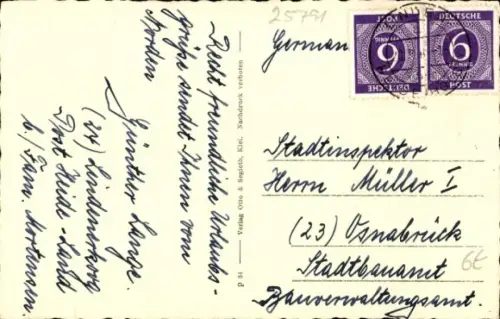 25791
Recht freundliche Urlaubs-
grüße sendet Ihnen vom
Norden
Günther Lange.
(24) Lindenskorg
Post Heide-Land
b./ Fam. Mortensen.
P 34 Verlag Otto & Segieth, Kiel. Nachdruck verboten
German
DEUTSCHE
6
PFENNIG
POST
DEUTSCHE
6
PFENNIG
POST
Stadtinspektor
Herrn Müller I
(23) Osnabrück
Stadtbauamt
Bauverwaltungsamt.
6€